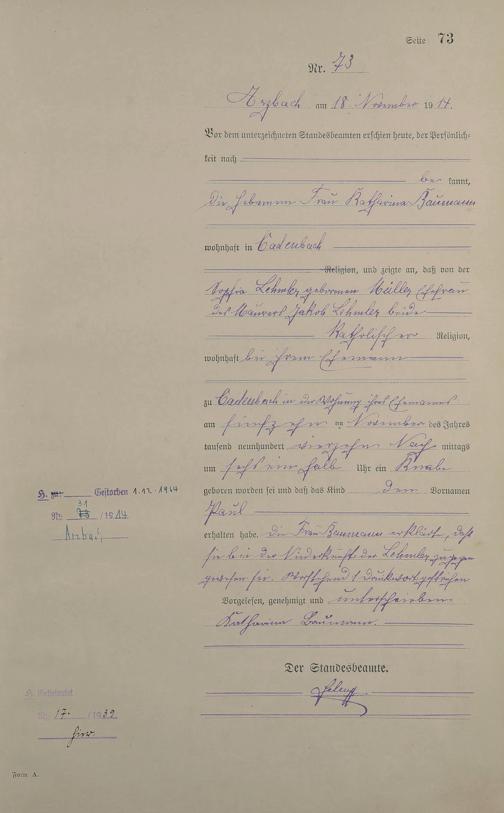 Seite 73
Nr. 73
Arzbach am 18 November 1914.
Vor dem unterzeichneten Standesbeamten erschien heute, der Persönlich-
keit nach
be kannt,
die Hebamme Frau Katharina Baumann
wohnhaft in Cadenbach
Religion, und zeigte an, daß von der
Sophia Lehmler geborenen Müller Ehefrau
des Maurers Jakob Lehmler beide
Katholischer Religion,
wohnhaft bei ihrem Ehemann
zu Cadenbach in der Wohnung ihres Ehemannes
am fünfzehn ten November des Jahres
tausend neunhundert vierzehn Nach mittags
um sechs ein halb Uhr ein Knabe
geboren worden sei und daß das Kind den Vornamen
Paul
erhalten habe. die Frau Baumann erklärte, daß
sie bei der Niederkunft der Lehmler zugegen
gewesen sei. Vorstehend 1 Druckwort gestrichen
Vorgelesen, genehmigt und unterschrieben
Katharina Baumann.
Der Standesbeamte.
H. Gestorben 1.12.1914
Nr. 31 /1914
Arzbach
H. Geheiratet
Nr. 17. /1932
hier
Form A.